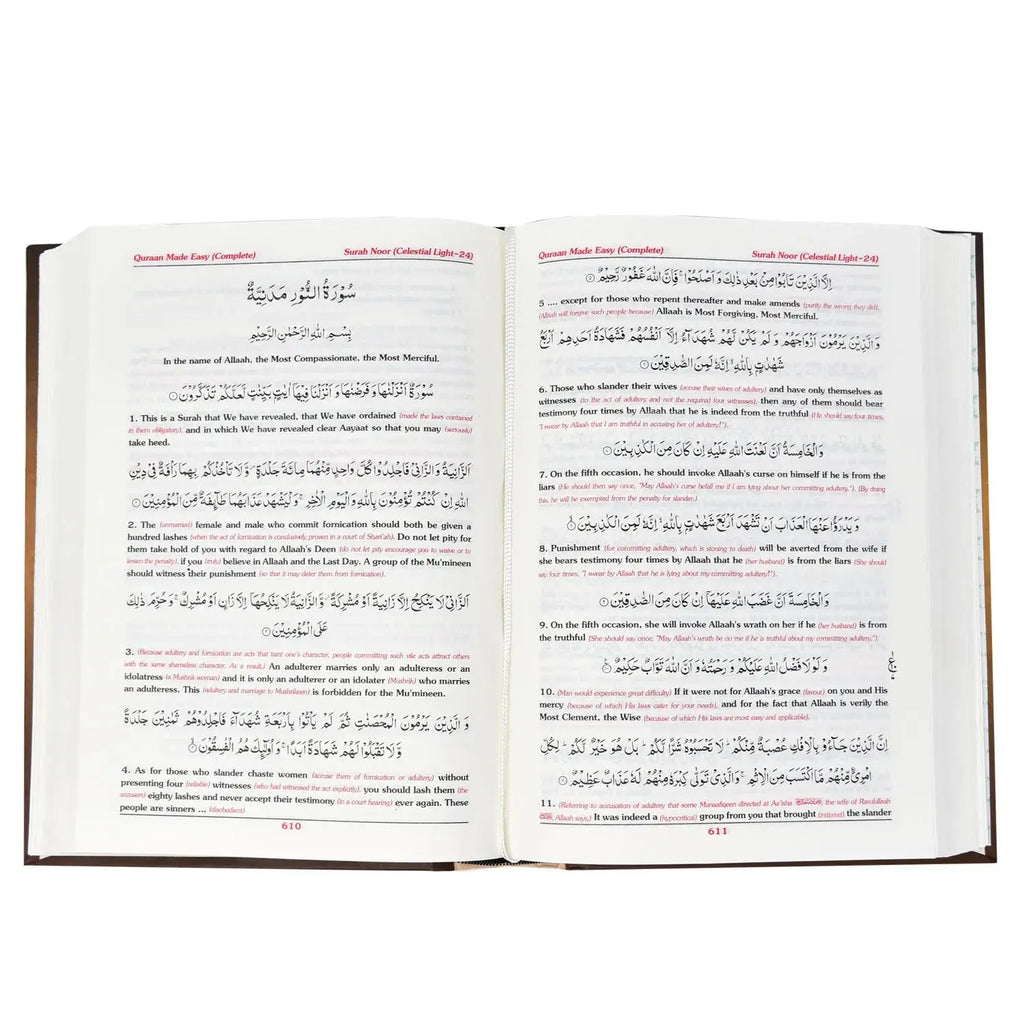 Quraan Made Easy (Complete) Surah Noor (Celestial Light-24)
سُوْرَةُ النُّوْرِ مَدَنِيَّةٌ
بِسْمِ اللهِ الرَّحْمٰنِ الرَّحِيْمِ
In the name of Allaah, the Most Compassionate, the Most Merciful.
سُوْرَةٌ اَنْزَلْنٰهَا وَ فَرَضْنٰهَا وَ اَنْزَلْنَا فِيْهَاۤ اٰيٰتٍۭ بَيِّنٰتٍ لَّعَلَّكُمْ تَذَكَّرُوْنَ ۝۱
1. This is a Surah that We have revealed, that We have ordained (made the laws contained
in them obligatory), and in which We have revealed clear Aayaat so that you may (seriously)
take heed.
اَلزَّانِيَةُ وَ الزَّانِيْ فَاجْلِدُوْا كُلَّ وَاحِدٍ مِّنْهُمَا مِائَةَ جَلْدَةٍ ۪ وَّ لَا تَاْخُذْكُمْ بِهِمَا رَاْفَةٌ فِيْ دِيْنِ
اللهِ اِنْ كُنْتُمْ تُؤْمِنُوْنَ بِاللهِ وَ الْيَوْمِ الْاٰخِرِ ۚ وَ لْيَشْهَدْ عَذَابَهُمَا طَآىِٕفَةٌ مِّنَ الْمُؤْمِنِيْنَ ۝۲
2. The (unmarried) female and male who commit fornication should both be given a
hundred lashes (when the act of fornication is conclusively proven in a court of Shari'ah). Do not let pity for
them take hold of you with regard to Allaah's Deen (do not let pity encourage you to waive or to
lessen the penalty), if you (truly) believe in Allaah and the Last Day. A group of the Mu'mineen
should witness their punishment (so that it may deter them from fornication).
اَلزَّانِيْ لَا يَنْكِحُ اِلَّا زَانِيَةً اَوْ مُشْرِكَةً ۫ وَّ الزَّانِيَةُ لَا يَنْكِحُهَاۤ اِلَّا زَانٍ اَوْ مُشْرِكٌ ۚ وَ حُرِّمَ ذٰلِكَ
عَلَى الْمُؤْمِنِيْنَ ۝۳
3. (Because adultery and fornication are acts that taint one's character, people committing such vile acts attract others
with the same shameless character. As a result,) An adulterer marries only an adulteress or an
idolatress (a Mushrik woman) and it is only an adulterer or an idolater (Mushrik) who marries
an adulteress. This (adultery and marriage to Mushrikeen) is forbidden for the Mu'mineen.
وَ الَّذِيْنَ يَرْمُوْنَ الْمُحْصَنٰتِ ثُمَّ لَمْ يَاْتُوْا بِاَرْبَعَةِ شُهَدَآءَ فَاجْلِدُوْهُمْ ثَمٰنِيْنَ جَلْدَةً
وَّ لَا تَقْبَلُوْا لَهُمْ شَهَادَةً اَبَدًا ۚ وَ اُولٰٓىِٕكَ هُمُ الْفٰسِقُوْنَ ۝۴
4. As for those who slander chaste women (accuse them of fornication or adultery) without
presenting four (reliable) witnesses (who had witnessed the act explicitly), you should lash them (the
accusers) eighty lashes and never accept their testimony (in a court hearing) ever again. These
people are sinners ... (disobedient)
610
Quraan Made Easy (Complete) Surah Noor (Celestial Light-24)
اِلَّا الَّذِيْنَ تَابُوْا مِنْۢ بَعْدِ ذٰلِكَ وَ اَصْلَحُوْا ۚ فَاِنَّ اللهَ غَفُوْرٌ رَّحِيْمٌ ۝۵
5 .... except for those who repent thereafter and make amends (purify the wrong they did).
(Allaah will forgive such people because) Allaah is Most Forgiving, Most Merciful.
وَ الَّذِيْنَ يَرْمُوْنَ اَزْوَاجَهُمْ وَ لَمْ يَكُنْ لَّهُمْ شُهَدَآءُ اِلَّاۤ اَنْفُسُهُمْ فَشَهَادَةُ اَحَدِهِمْ اَرْبَعُ
شَهٰدٰتٍۭ بِاللهِ ۙ اِنَّهٗ لَمِنَ الصّٰدِقِيْنَ ۝۶
6. Those who slander their wives (accuse their wives of adultery) and have only themselves as
witnesses (to the act of adultery and not the required four witnesses), then any of them should bear
testimony four times by Allaah that he is indeed from the truthful (He should say four times,
"I swear by Allaah that I am truthful in accusing her of adultery!").
وَ الْخَامِسَةُ اَنَّ لَعْنَتَ اللهِ عَلَيْهِ اِنْ كَانَ مِنَ الْكٰذِبِيْنَ ۝۷
7. On the fifth occasion, he should invoke Allaah's curse on himself if he is from the
liars (He should then say once, "May Allaah's curse befall me if I am lying about her committing adultery"). (By doing
this, he will be exempted from the penalty for slander.)
وَ يَدْرَؤُا عَنْهَا الْعَذَابَ اَنْ تَشْهَدَ اَرْبَعَ شَهٰدٰتٍۭ بِاللهِ ۙ اِنَّهٗ لَمِنَ الْكٰذِبِيْنَ ۝۸
8. Punishment (for committing adultery, which is stoning to death) will be averted from the wife if
she bears testimony four times by Allaah that he (her husband) is from the liars (She should
say four times, "I swear by Allaah that he is lying about my committing adultery!").
وَ الْخَامِسَةَ اَنَّ غَضَبَ اللهِ عَلَيْهَاۤ اِنْ كَانَ مِنَ الصّٰدِقِيْنَ ۝۹
9. On the fifth occasion, she will invoke Allaah's wrath on her if he (her husband) is from
the truthful (She should say once, "May Allaah's wrath be on me if he is truthful about my committing adultery").
وَ لَوْ لَا فَضْلُ اللهِ عَلَيْكُمْ وَ رَحْمَتُهٗ وَ اَنَّ اللهَ تَوَّابٌ حَكِيْمٌ ۝۱۰
10. (Man would experience great difficulty) If it were not for Allaah's grace (favour) on you and His
mercy (because of which His laws cater for your needs), and for the fact that Allaah is verily the
Most Clement, the Wise (because of which His laws are most easy and applicable).
اِنَّ الَّذِيْنَ جَآءُوْ بِالْاِفْكِ عُصْبَةٌ مِّنْكُمْ ؕ لَا تَحْسَبُوْهُ شَرًّا لَّكُمْ ؕ بَلْ هُوَ خَيْرٌ لَّكُمْ ؕ لِكُلِّ
امْرِئٍ مِّنْهُمْ مَّا اكْتَسَبَ مِنَ الْاِثْمِ ۚ وَ الَّذِيْ تَوَلّٰى كِبْرَهٗ مِنْهُمْ لَهٗ عَذَابٌ عَظِيْمٌ ۝۱۱
11. (Referring to accusation of adultery that some Munaafiqeen directed at Aa'isha the wife of Rasulullaah
Allaah says,) It was indeed a (hypocritical) group from you that brought (initiated) the slander
611